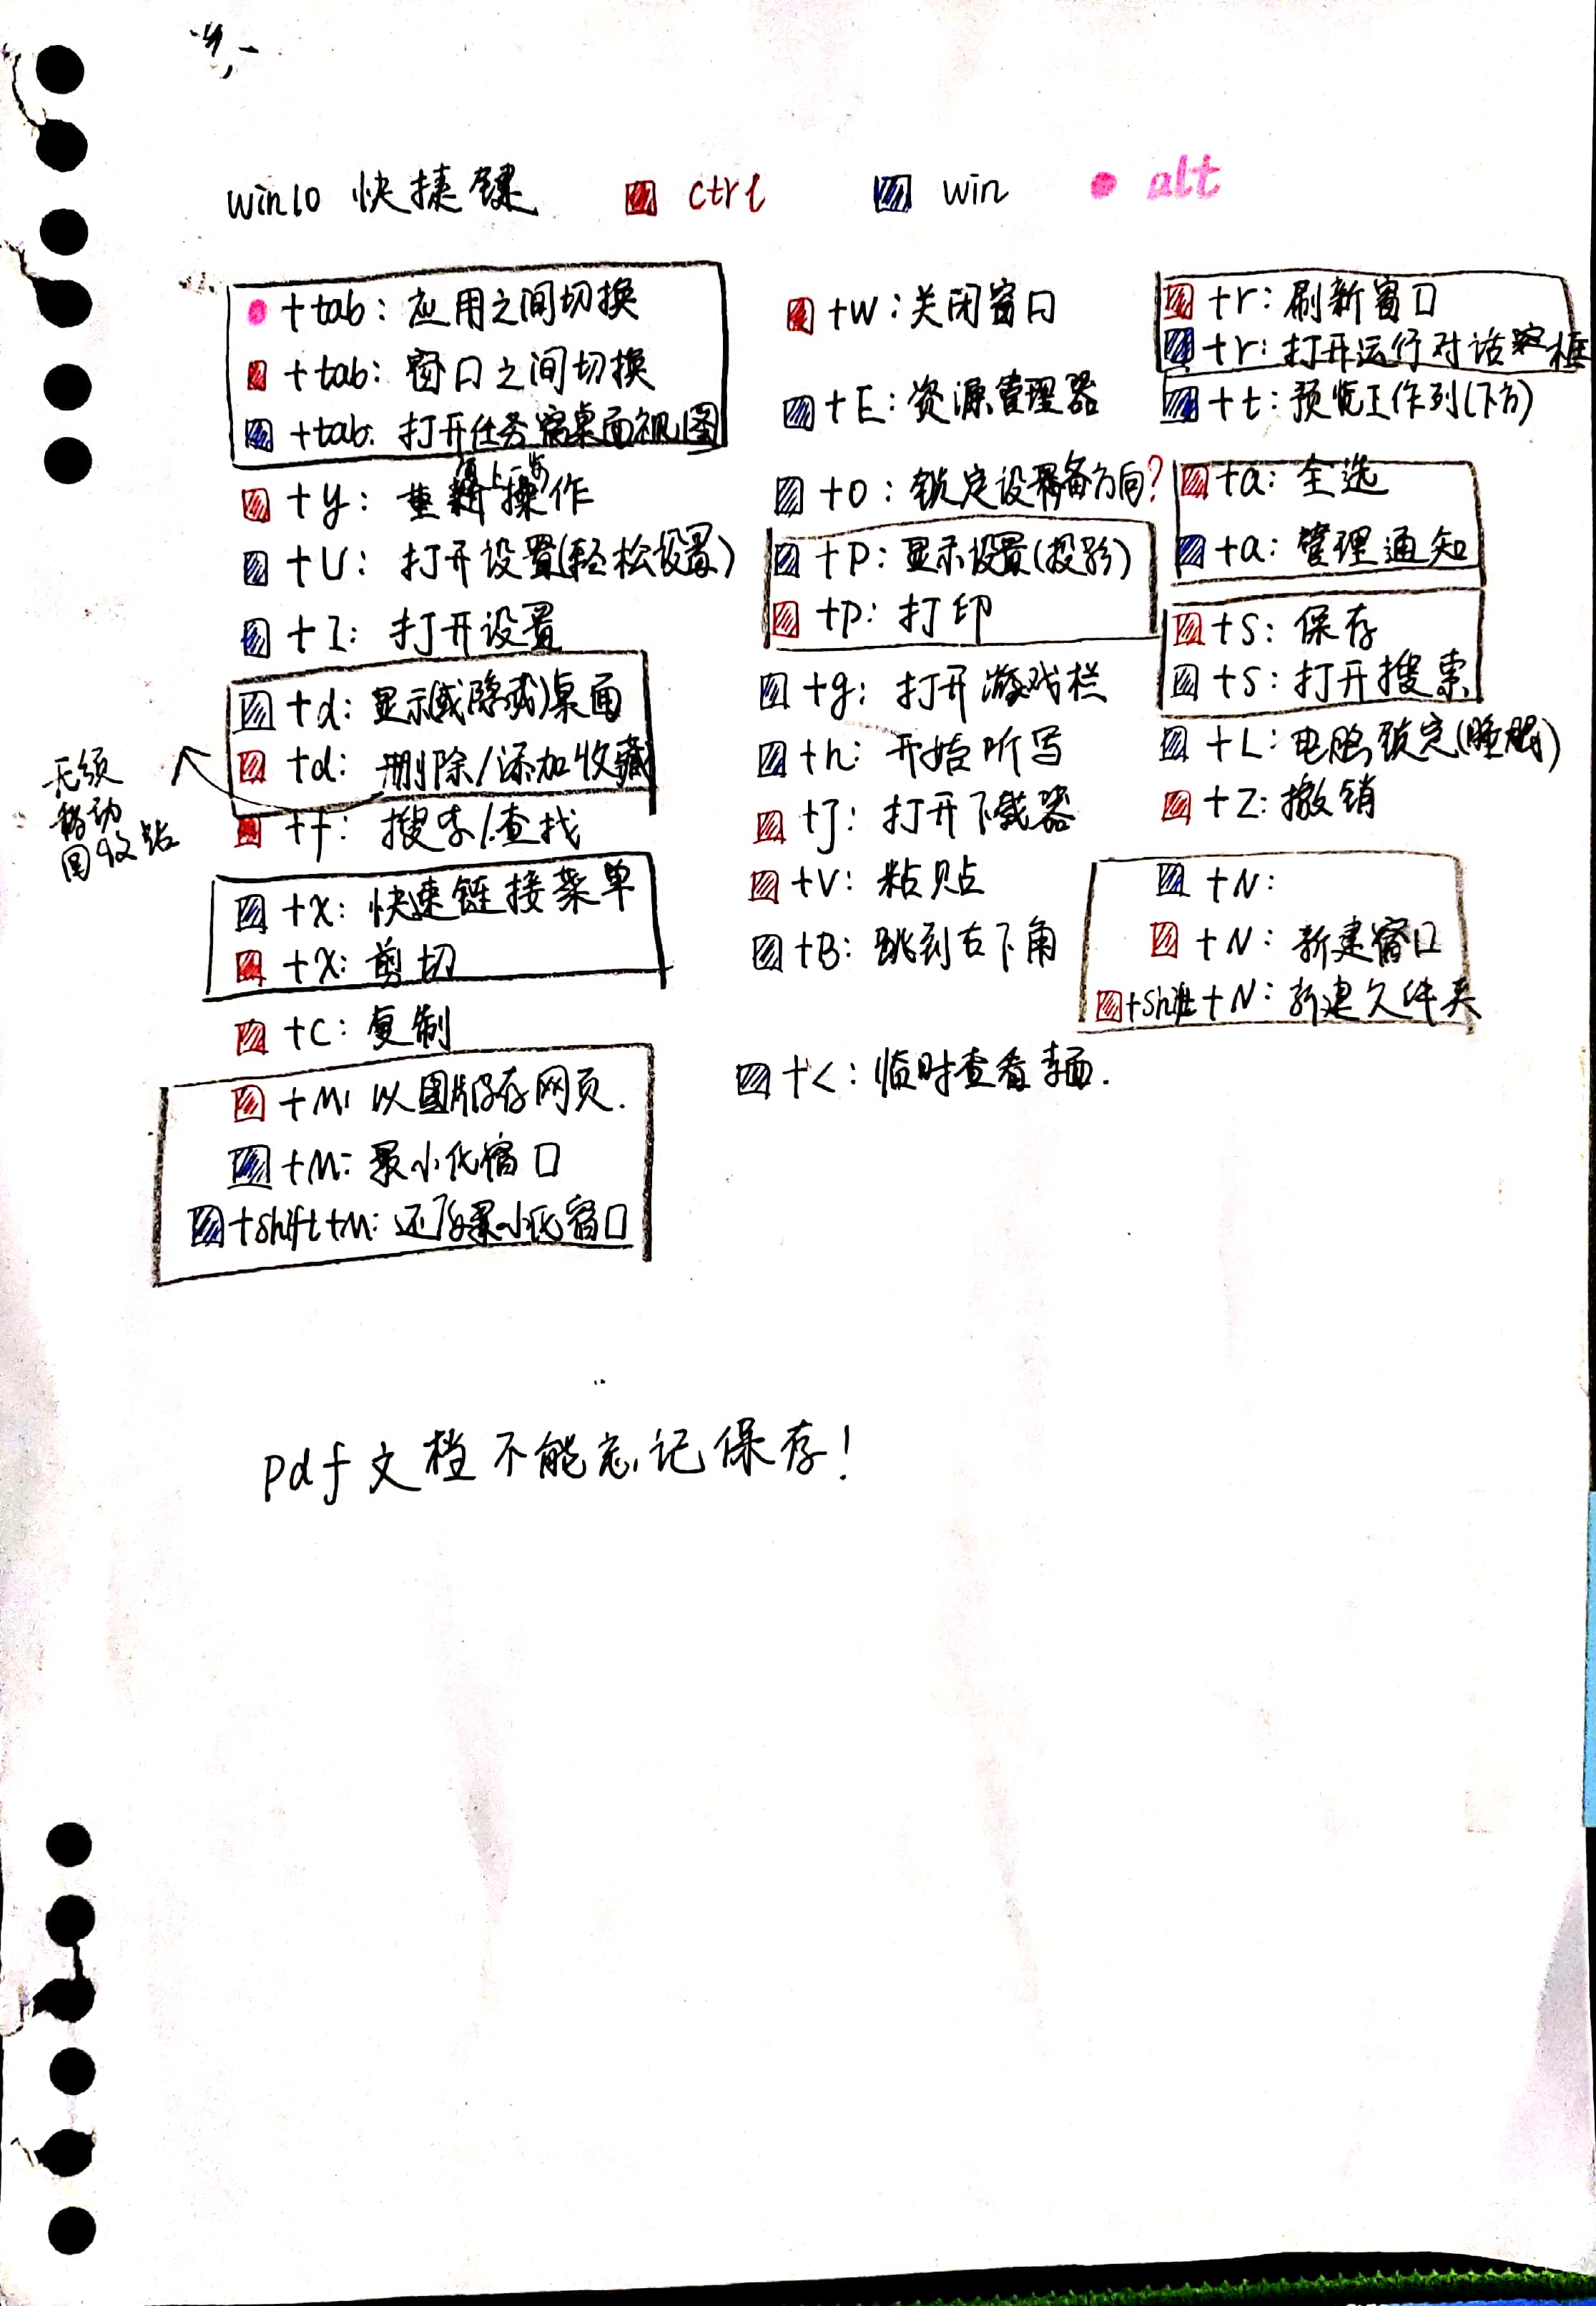 win10 快捷键 ctrl win alt
+tab: 应用之间切换
+tab: 窗口之间切换
+tab: 打开任务 桌面视图
+y: 重新操作
+U: 打开设置(轻松设置)
+I: 打开设置
+d: 显示(或隐藏)桌面
+d: 删除/添加收藏
无须
移动
回收站
+f: 搜索/查找
+x: 快速链接菜单
+x: 剪切
+c: 复制
+M: 以图片保存网页.
+M: 最小化窗口
+shift+M: 还原最小化窗口
+w: 关闭窗口
+E: 资源管理器
+o: 锁定设备方向?
+P: 显示设置(投影)
+p: 打印
+g: 打开游戏栏
+h: 开始听写
+J: 打开下载器
+v: 粘贴
+B: 跳到右下角
+<: 临时查看桌面.
+r: 刷新窗口
+r: 打开运行对话框
+t: 预览工作列(下方)
+a: 全选
+a: 管理通知
+s: 保存
+s: 打开搜索
+L: 电脑锁定(睡眠)
+Z: 撤销
+N:
+N: 新建窗口
+shift+N: 新建文件夹
pdf文档不能忘记保存!